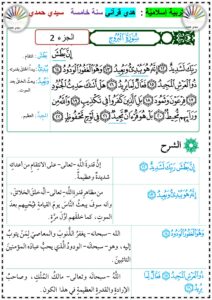 تربية إسلامية هدي قرآني سنة خامسة سيدي حمدي
سورة البروج
الجزء 2
إن بطش
إن بطش ربك لشديد إنه هو يبدئ ويعيد وهو الغفور الودود
ذو العرش المجيد فعال لما يريد هل أتاك حديث الجنود
فرعون وثمود بل الذين كفروا في تكذيب والله من
ورائهم محيط بل هو قرآن مجيد في لوح محفوظ
الشرح
إن بطش ربك لشديد
إن قدرة الله -تعالى- على الانتقام من أعدائه
شديدة وعظيمة.
إنه هو يبدئ ويعيد
من مظاهر قدرة الله -تعالى- أنه خلق الخلائق،
وأنه سوف يبعث الناس يوم القيامة فيحييهم بعد
الموت، كما خلقهم أول مرة.
وهو الغفور الودود
الله -سبحانه- يغفر الذنوب والمعاصي لمن يتوب
إليه، وهو -سبحانه- الودود الذي يحب عباده المؤمنين
التائبين.
ذو العرش المجيد فعال لما يريد
الله -سبحانه وتعالى- مالك الملك، وصاحب
الإرادة والقدرة العظيمة في هذا الكون.